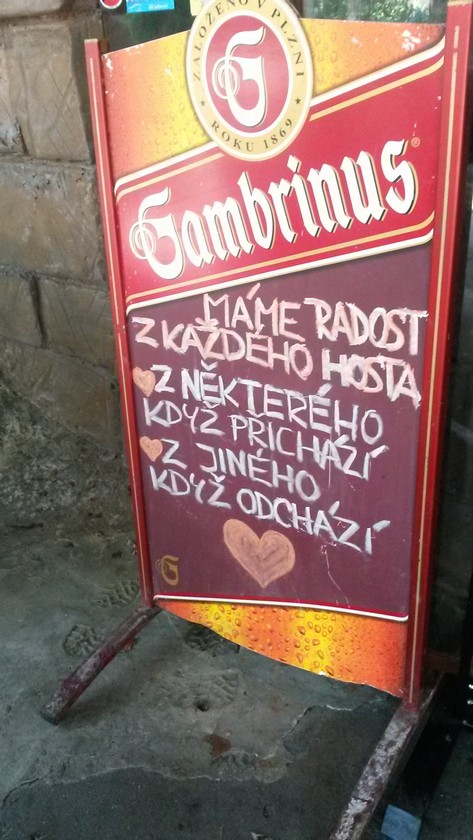 ZALOŽENO V PLZNI
G
ROKU 1869
Gambrinus®
MÁME RADOST
Z KAŽDÉHO HOSTA
Z NĚKTERÉHO
KDYŽ PŘICHÁZÍ
Z JINÉHO
KDYŽ ODCHÁZÍ
G